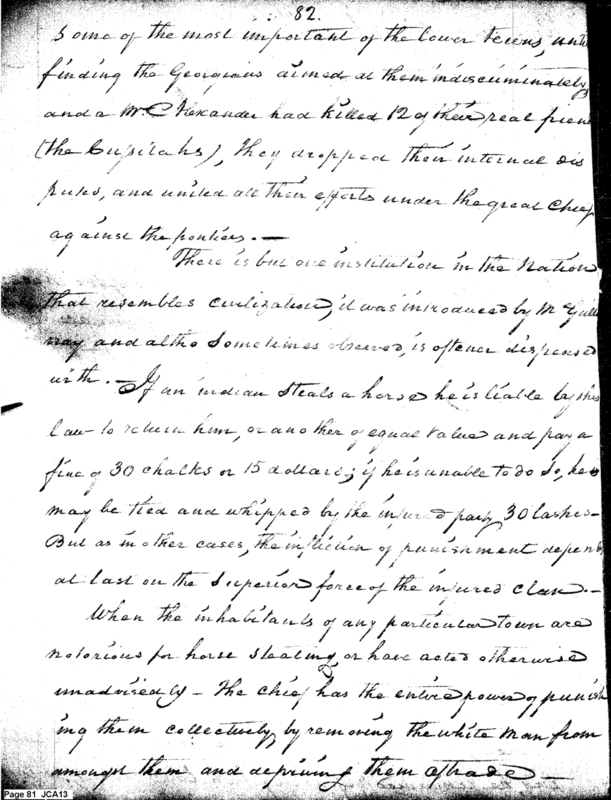 82.
Some of the most important of the lower towns, unti
finding the Georgians aimed at them indiscriminately
and a Mr Alexander had killed 12 of their real frien
(the Cussitahs), they dropped their internal dis
putes, and united all their efforts under the great Chief
against the frontiers. —
There is but one institution in the Nation
that resembles civilization, it was introduced by Mr Gilli
vray and altho Sometimes observed, is oftener dispensed
with. — If an indian steals a horse he is liable by this
law to return him, or another of equal value and pay a
fine of 30 chalks or 15 dollars; if he is unable to do so, he
may be tied and whipped by the injured party 30 lashes—
But as in other cases, the infliction of punishment depends
at last on the Superior force of the injured clan. —
When the inhabitants of any particular town are
notorious for horse stealing, or have acted otherwise
unadvisedly — The Chief has the entire power of punish
ing them collectively, by removing the white man from
amongst them and depriving them of trade —
Page 81 JCA13